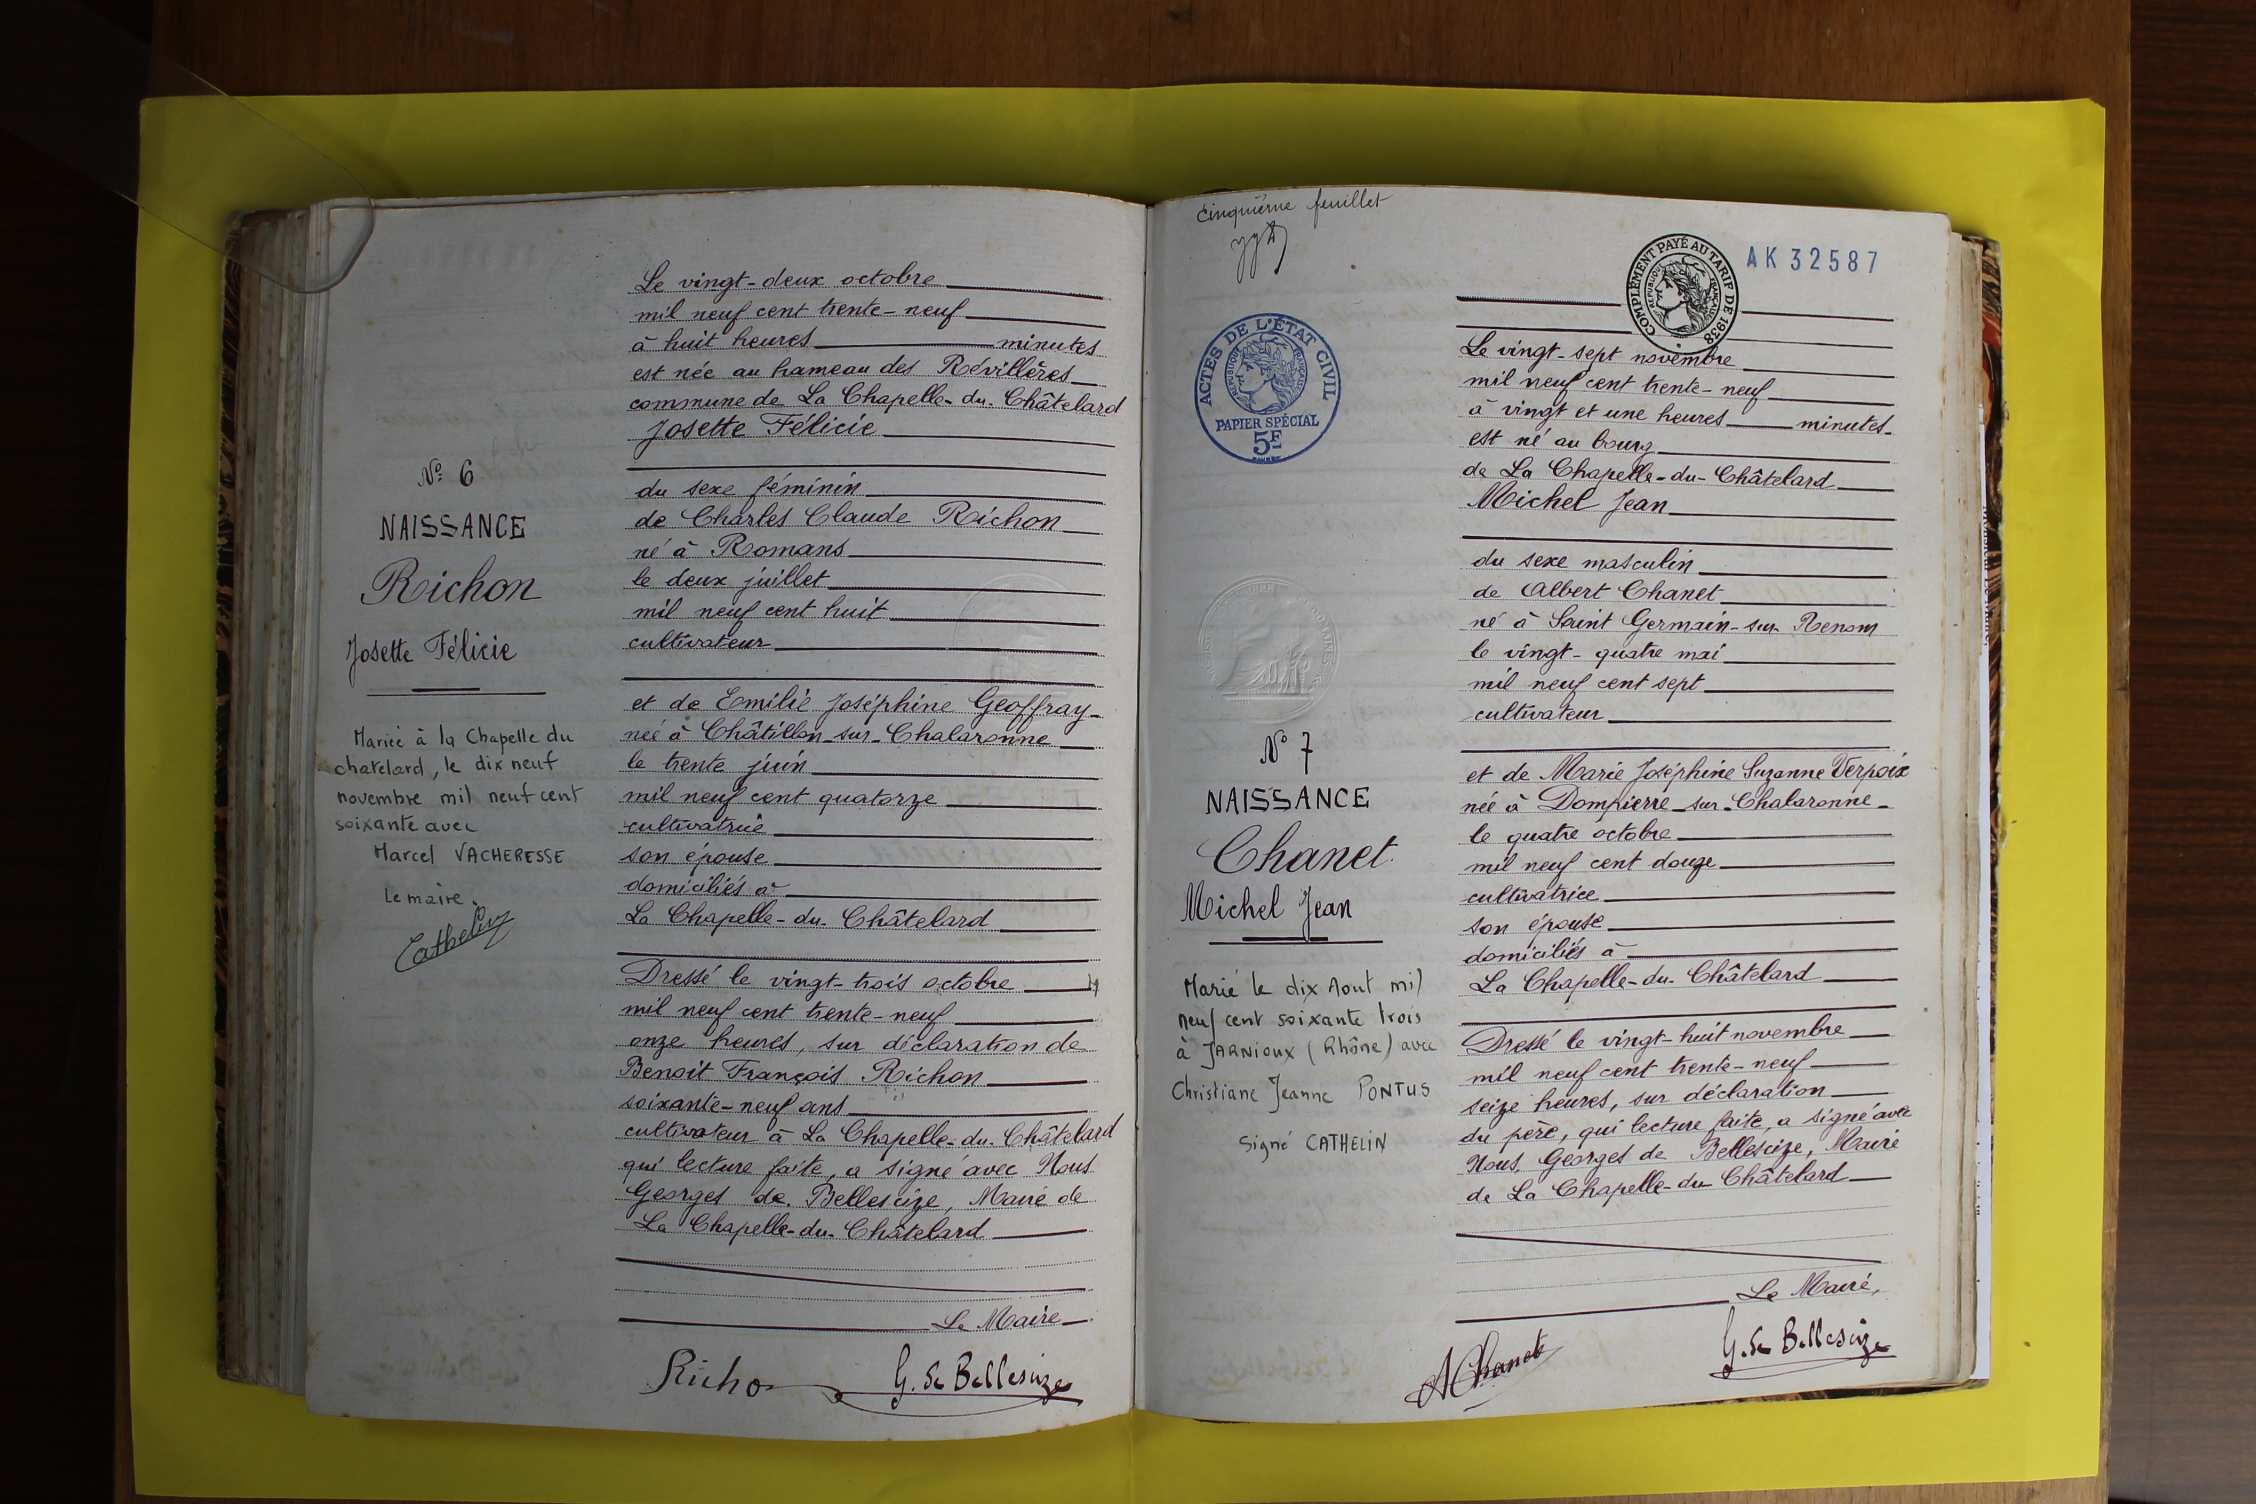 Le vingt-deux octobre
mil neuf cent trente-neuf
à huit heures minutes
est née au hameau des Révillères
commune de La Chapelle-du-Châtelard
Josette Félicie
du sexe féminin
de Charles Claude Richon
né à Romans
le deux juillet
mil neuf cent huit
cultivateur
et de Emilie Joséphine Geoffray
née à Châtillon-sur-Chalaronne
le trente juin
mil neuf cent quatorze
cultivatrice
son épouse
domiciliés à
La Chapelle-du-Châtelard
Dressé le vingt-trois octobre
mil neuf cent trente-neuf
onze heures, sur déclaration de
Benoit François Richon
soixante-neuf ans
cultivateur à La Chapelle-du-Châtelard
qui lecture faite, a signé avec Nous
Georges de Bellescize, Maire de
La Chapelle-du-Châtelard
Le Maire
Richon
G. de Bellescize
N° 6
NAISSANCE
Richon
Josette Félicie
Mariée à la Chapelle du
chatelard, le dix neuf
novembre mil neuf cent
soixante avec
Marcel VACHERESSE
Le maire.
Cathelin
cinquième feuillet
AK 32587
COMPLÉMENT PAYÉ AU TARIF DE 1938
RÉPUBLIQUE FRANÇAISE
ACTES DE L'ÉTAT CIVIL
RÉPUBLIQUE FRANÇAISE
PAPIER SPÉCIAL
5F
N° 7
NAISSANCE
Chanet.
Michel Jean
Marié le dix Aout mil
neuf cent soixante trois
à JARNIOUX (Rhône) avec
Christiane Jeanne PONTUS
Signé CATHELIN
Le vingt-sept novembre
mil neuf cent trente-neuf
à vingt et une heures minutes
est né au bourg
de La Chapelle-du-Châtelard
Michel Jean
du sexe masculin
de Albert Chanet
né à Saint Germain-sur-Renom
le vingt-quatre mai
mil neuf cent sept
cultivateur
et de Marie Joséphine Suzanne Verpoix
née à Dompierre-sur-Chalaronne
le quatre octobre
mil neuf cent douze
cultivatrice
son épouse
domiciliés à
La Chapelle-du-Châtelard
Dressé le vingt-huit novembre
mil neuf cent trente-neuf
seize heures, sur déclaration
du père, qui lecture faite, a signé avec
Nous, Georges de Bellescize, Maire
de La Chapelle-du-Châtelard
Le Maire,
A Chanet
G. de Bellescize